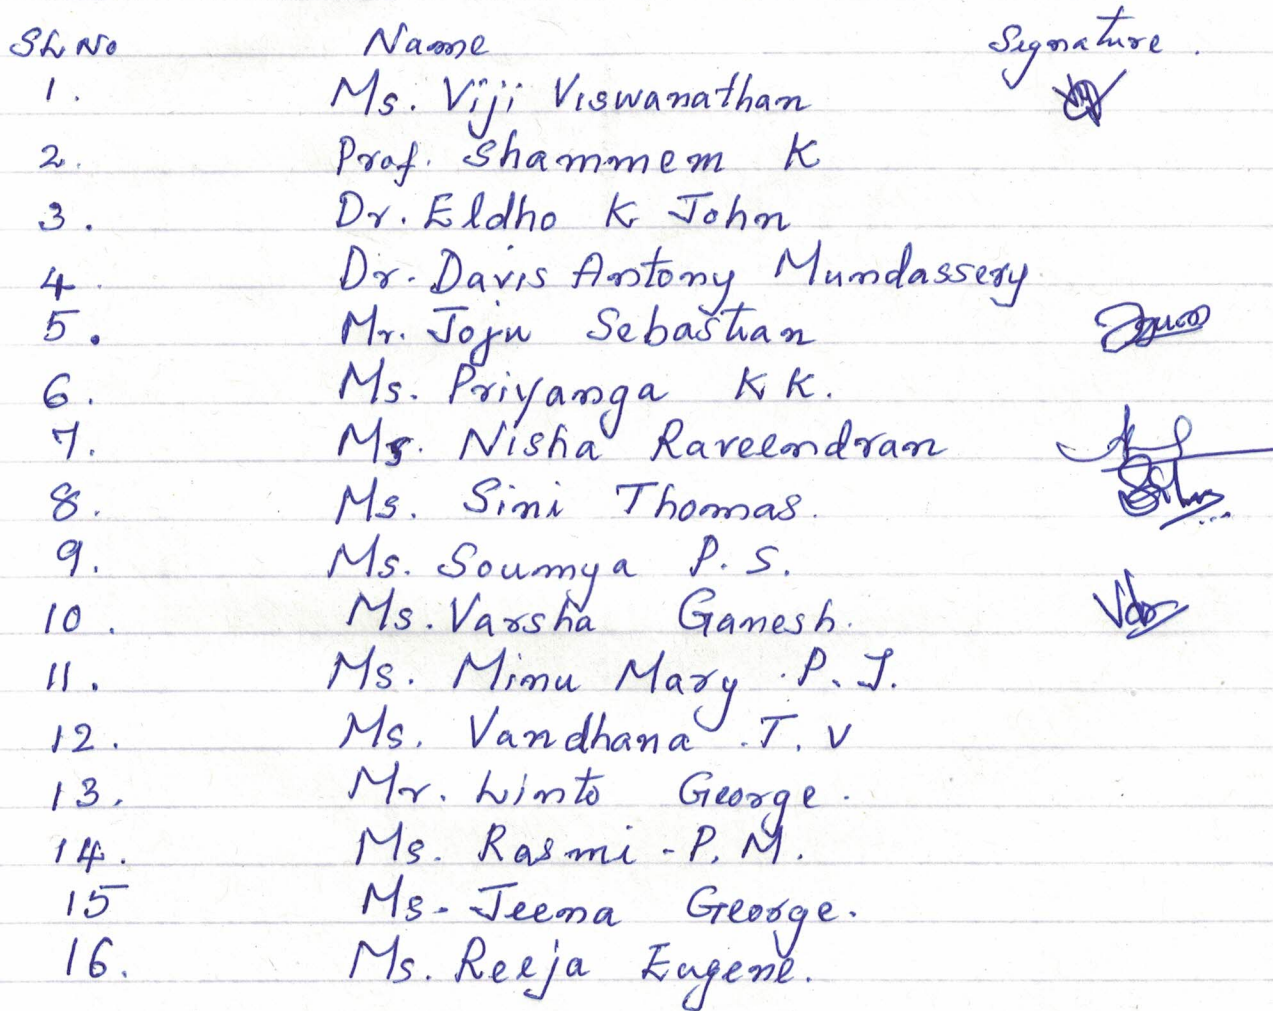 SL No Name Signature.
1. Ms. Viji Viswanathan
2. Prof. Shammem K
3. Dr. Eldho K John
4. Dr. Davis Antony Mundassery
5. Mr. Joju Sebastian
6. Ms. Priyanga K K.
7. Ms. Nisha Raveendran
8. Ms. Sini Thomas.
9. Ms. Soumya P. S.
10. Ms. Varsha Ganesh.
11. Ms. Minu Mary P. J.
12. Ms. Vandhana T. V
13. Mr. Linto George.
14. Ms. Rasmi - P. M.
15 Ms. Jeena George.
16. Ms. Reeja Eugene.